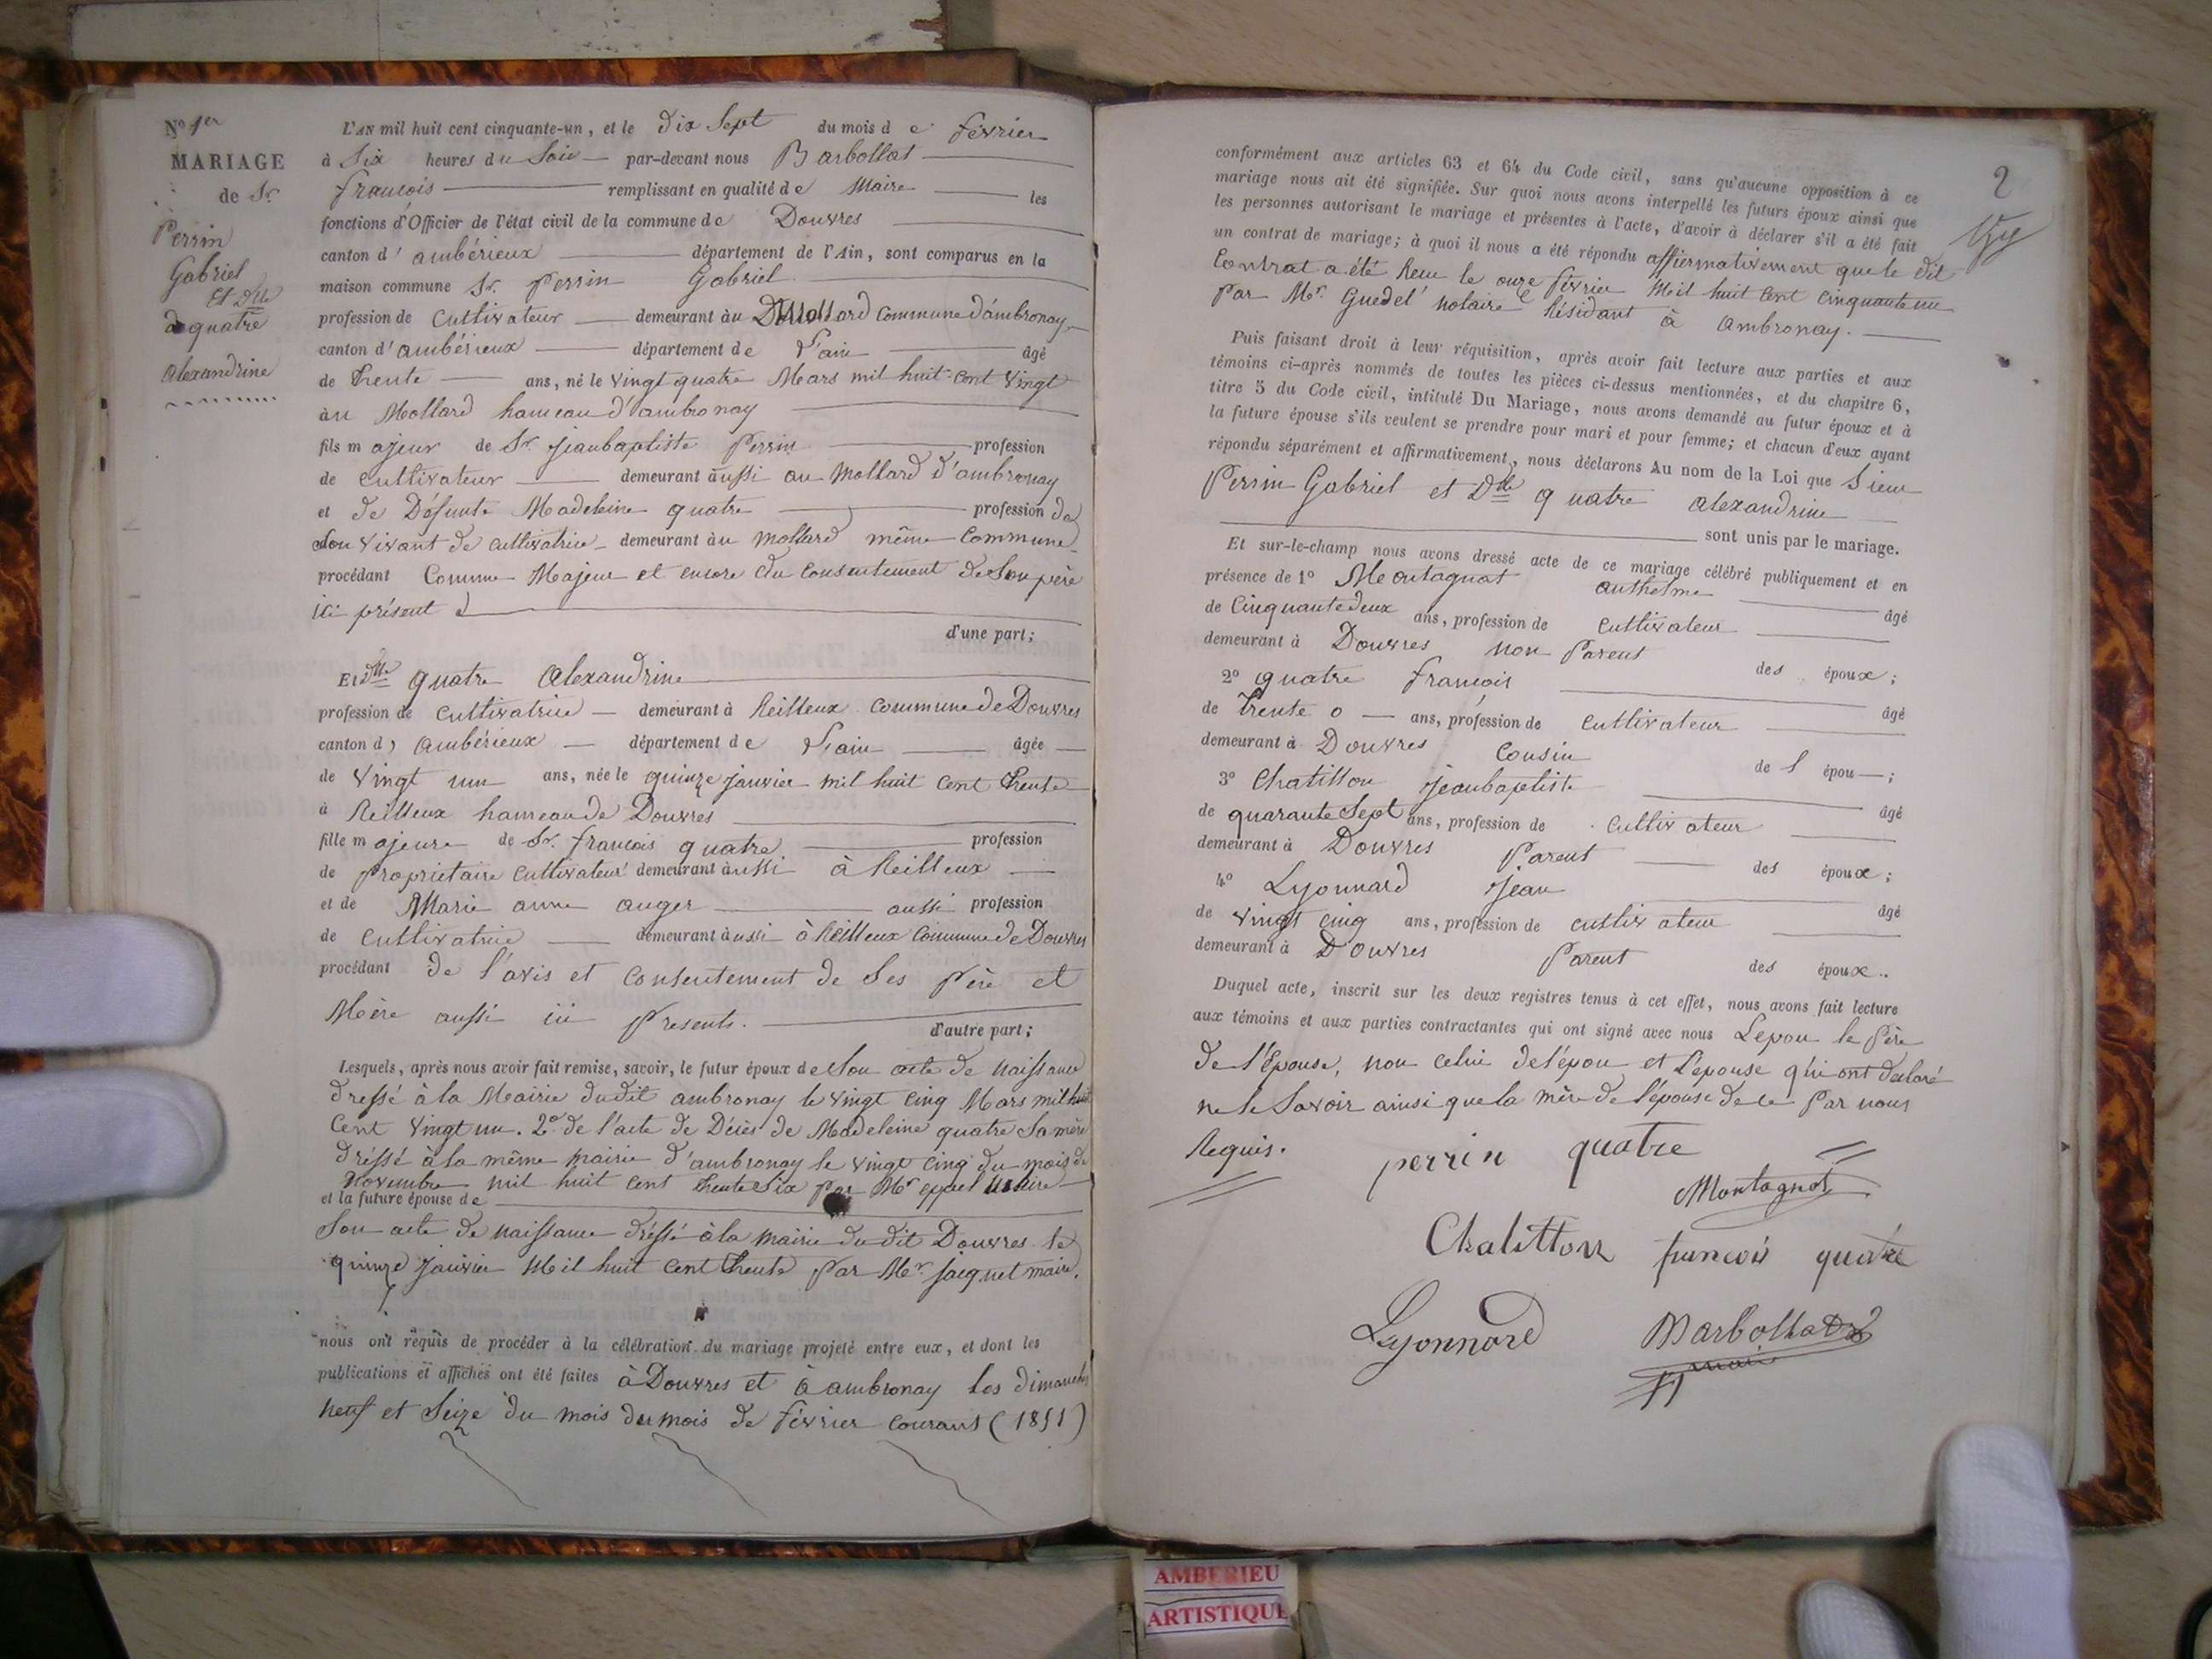 N° 1er
MARIAGE
de Sr.
Perrin
Gabriel
Et Dlle
quatre
alexandrine
L'AN mil huit cent cinquante-un, et le dix Sept du mois de fevrier
à Six heures du Soir par-devant nous Barbollat
françois remplissant en qualité de Maire les
fonctions d'Officier de l'état civil de la commune de Douvres
canton d'ambérieux département de l'Ain, sont comparus en la
maison commune Sr. Perrin Gabriel
profession de Cultivateur demeurant au Mollard Commune d'ambronay
canton d'ambérieux département de l'ain âgé
de trente ans, né le vingt quatre Mars mil huit cent vingt
au Mollard hameau d'ambronay
fils majeur de Sr. jeanbaptiste Perrin profession
de cultivateur demeurant aussi au Mollard d'ambronay
et de Défunte Madeleine quatre profession de
Son vivant de cultivatrice demeurant au mollard même Commune
procédant Comme Majeur et encore du consentement de Son père
ici présent d'une part;
Et Dlle quatre alexandrine
profession de cultivatrice demeurant à Reilleux commune de Douvres
canton d'ambérieux département de l'ain âgée
de vingt un ans, née le quinze janvier mil huit cent trente
à Reilleux hameau de Douvres
fille majeure de Sr. françois quatre profession
de Propriétaire cultivateur demeurant aussi à Reilleux
et de Marie anne auger aussi profession
de cultivatrice demeurant aussi à Reilleux commune de Douvres
procédant de l'avis et consentement de Ses Père et
Mère aussi ici Presents. d'autre part;
Lesquels, après nous avoir fait remise, savoir, le futur époux de Son acte de naissance
dressé à la Mairie dudit ambronay le vingt cinq Mars mil huit
Cent vingt un. 2° de l'acte de Décès de Madeleine quatre Sa mère
dréssé à la même mairie d'ambronay le vingt cinq du mois de
novembre mil huit cent trente Six par Mr
et la future épouse de
Son acte de naissance dréssé à la mairie du dit Douvres le
quinze janvier Mil huit cent trente par Mr. jacquet maire.
nous ont requis de procéder à la célébration du mariage projeté entre eux, et dont les
publications et affiches ont été faites à Douvres et à ambronay les dimanches
neuf et Seize du mois du mois de février courant (1851)
2
conformément aux articles 63 et 64 du Code civil, sans qu'aucune opposition à ce
mariage nous ait été signifiée. Sur quoi nous avons interpellé les futurs époux ainsi que
les personnes autorisant le mariage et présentes à l'acte, d'avoir à déclarer s'il a été fait
un contrat de mariage; à quoi il nous a été répondu affiermativement que le dit
Contrat a été Reçu le onze février Mil huit Cent Cinquante un
Par Mr. Guedel notaire Résidant à ambronay.
Puis faisant droit à leur réquisition, après avoir fait lecture aux parties et aux
témoins ci-après nommés de toutes les pièces ci-dessus mentionnées, et du chapitre 6,
titre 5 du Code civil, intitulé Du Mariage, nous avons demandé au futur époux et à
la future épouse s'ils veulent se prendre pour mari et pour femme; et chacun d'eux ayant
répondu séparément et affirmativement, nous déclarons Au nom de la Loi que Sieur
Perrin Gabriel et Dlle quatre alexandrine
sont unis par le mariage.
Et sur-le-champ nous avons dressé acte de ce mariage célébré publiquement et en
présence de 1° Montagnat anthelme âgé
de Cinquante deux ans, profession de cultivateur
demeurant à Douvres non Parent des époux;
2° quatre françois âgé
de trente ans, profession de cultivateur
demeurant à Douvres Cousin de l épou;
3° Chatillon jeanbaptiste âgé
de quarante Sept ans, profession de cultivateur
demeurant à Douvres Parent des époux;
4° Lyonnard jean âgé
de vingt cinq ans, profession de cultivateur
demeurant à Douvres Parent des époux.
Duquel acte, inscrit sur les deux registres tenus à cet effet, nous avons fait lecture
aux témoins et aux parties contractantes qui ont signé avec nous Lepou le Père
de l'épouse, non celui de l'épou et l'epouse qui ont declaré
ne le Savoir ainsi que la mère de l'épouse de ce Par nous
Requis.
perrin quatre
Montagnat
Chalitton francois quatre
Lyonnard Barbollat
maire
AMBERIEU
ARTISTIQUE